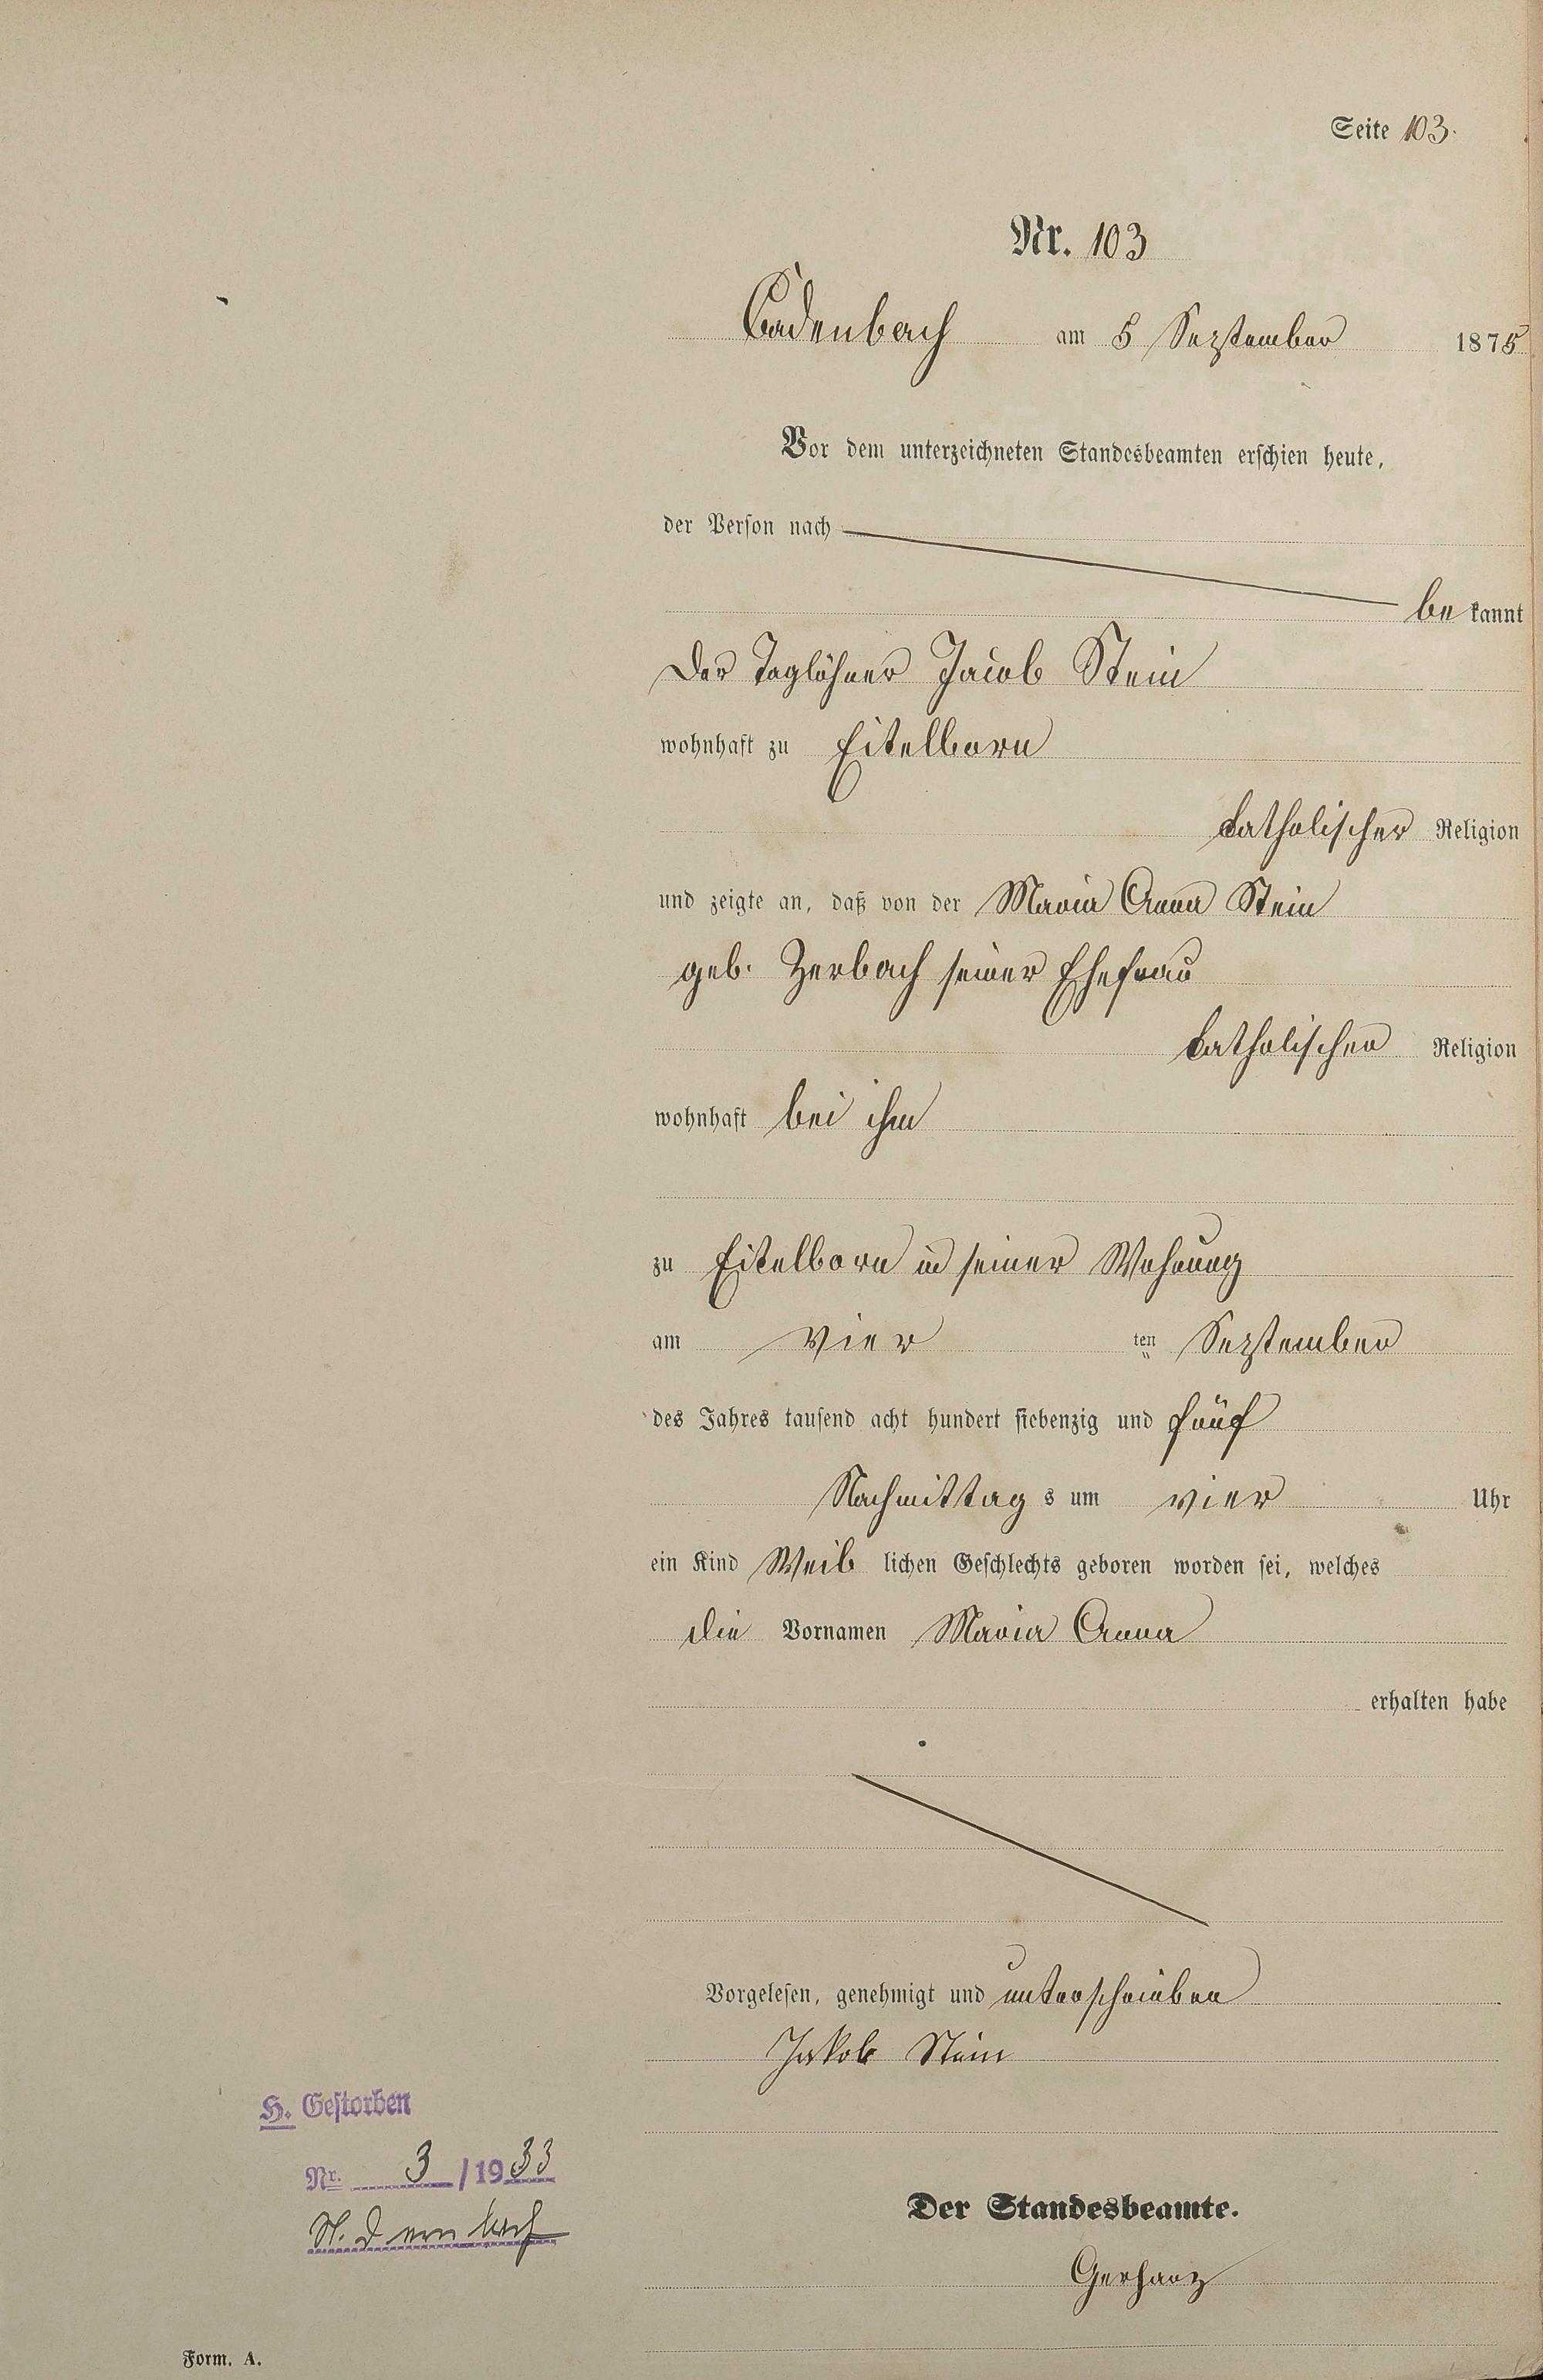 Seite 103.
Nr. 103
Cadenbach am 5 September 1875
Vor dem unterzeichneten Standesbeamten erschien heute,
der Person nach
be kannt
Der Taglöhner Jacob Stein
wohnhaft zu Eitelborn
katholischer Religion
und zeigte an, daß von der Maria Anna Stein
geb. Zerbach seiner Ehefrau
katholischer Religion
wohnhaft bei ihm
zu Eitelborn in seiner Wohnung
am vier ten September
des Jahres tausend acht hundert siebenzig und fünf
Nachmittag s um vier Uhr
ein Kind Weib lichen Geschlechts geboren worden sei, welches
die Vornamen Maria Anna
erhalten habe
Vorgelesen, genehmigt und unterschrieben
Jakob Stein
H. Gestorben
Nr. 3 / 1933
St. Dernbach
Der Standesbeamte.
Gerharz
Form. A.